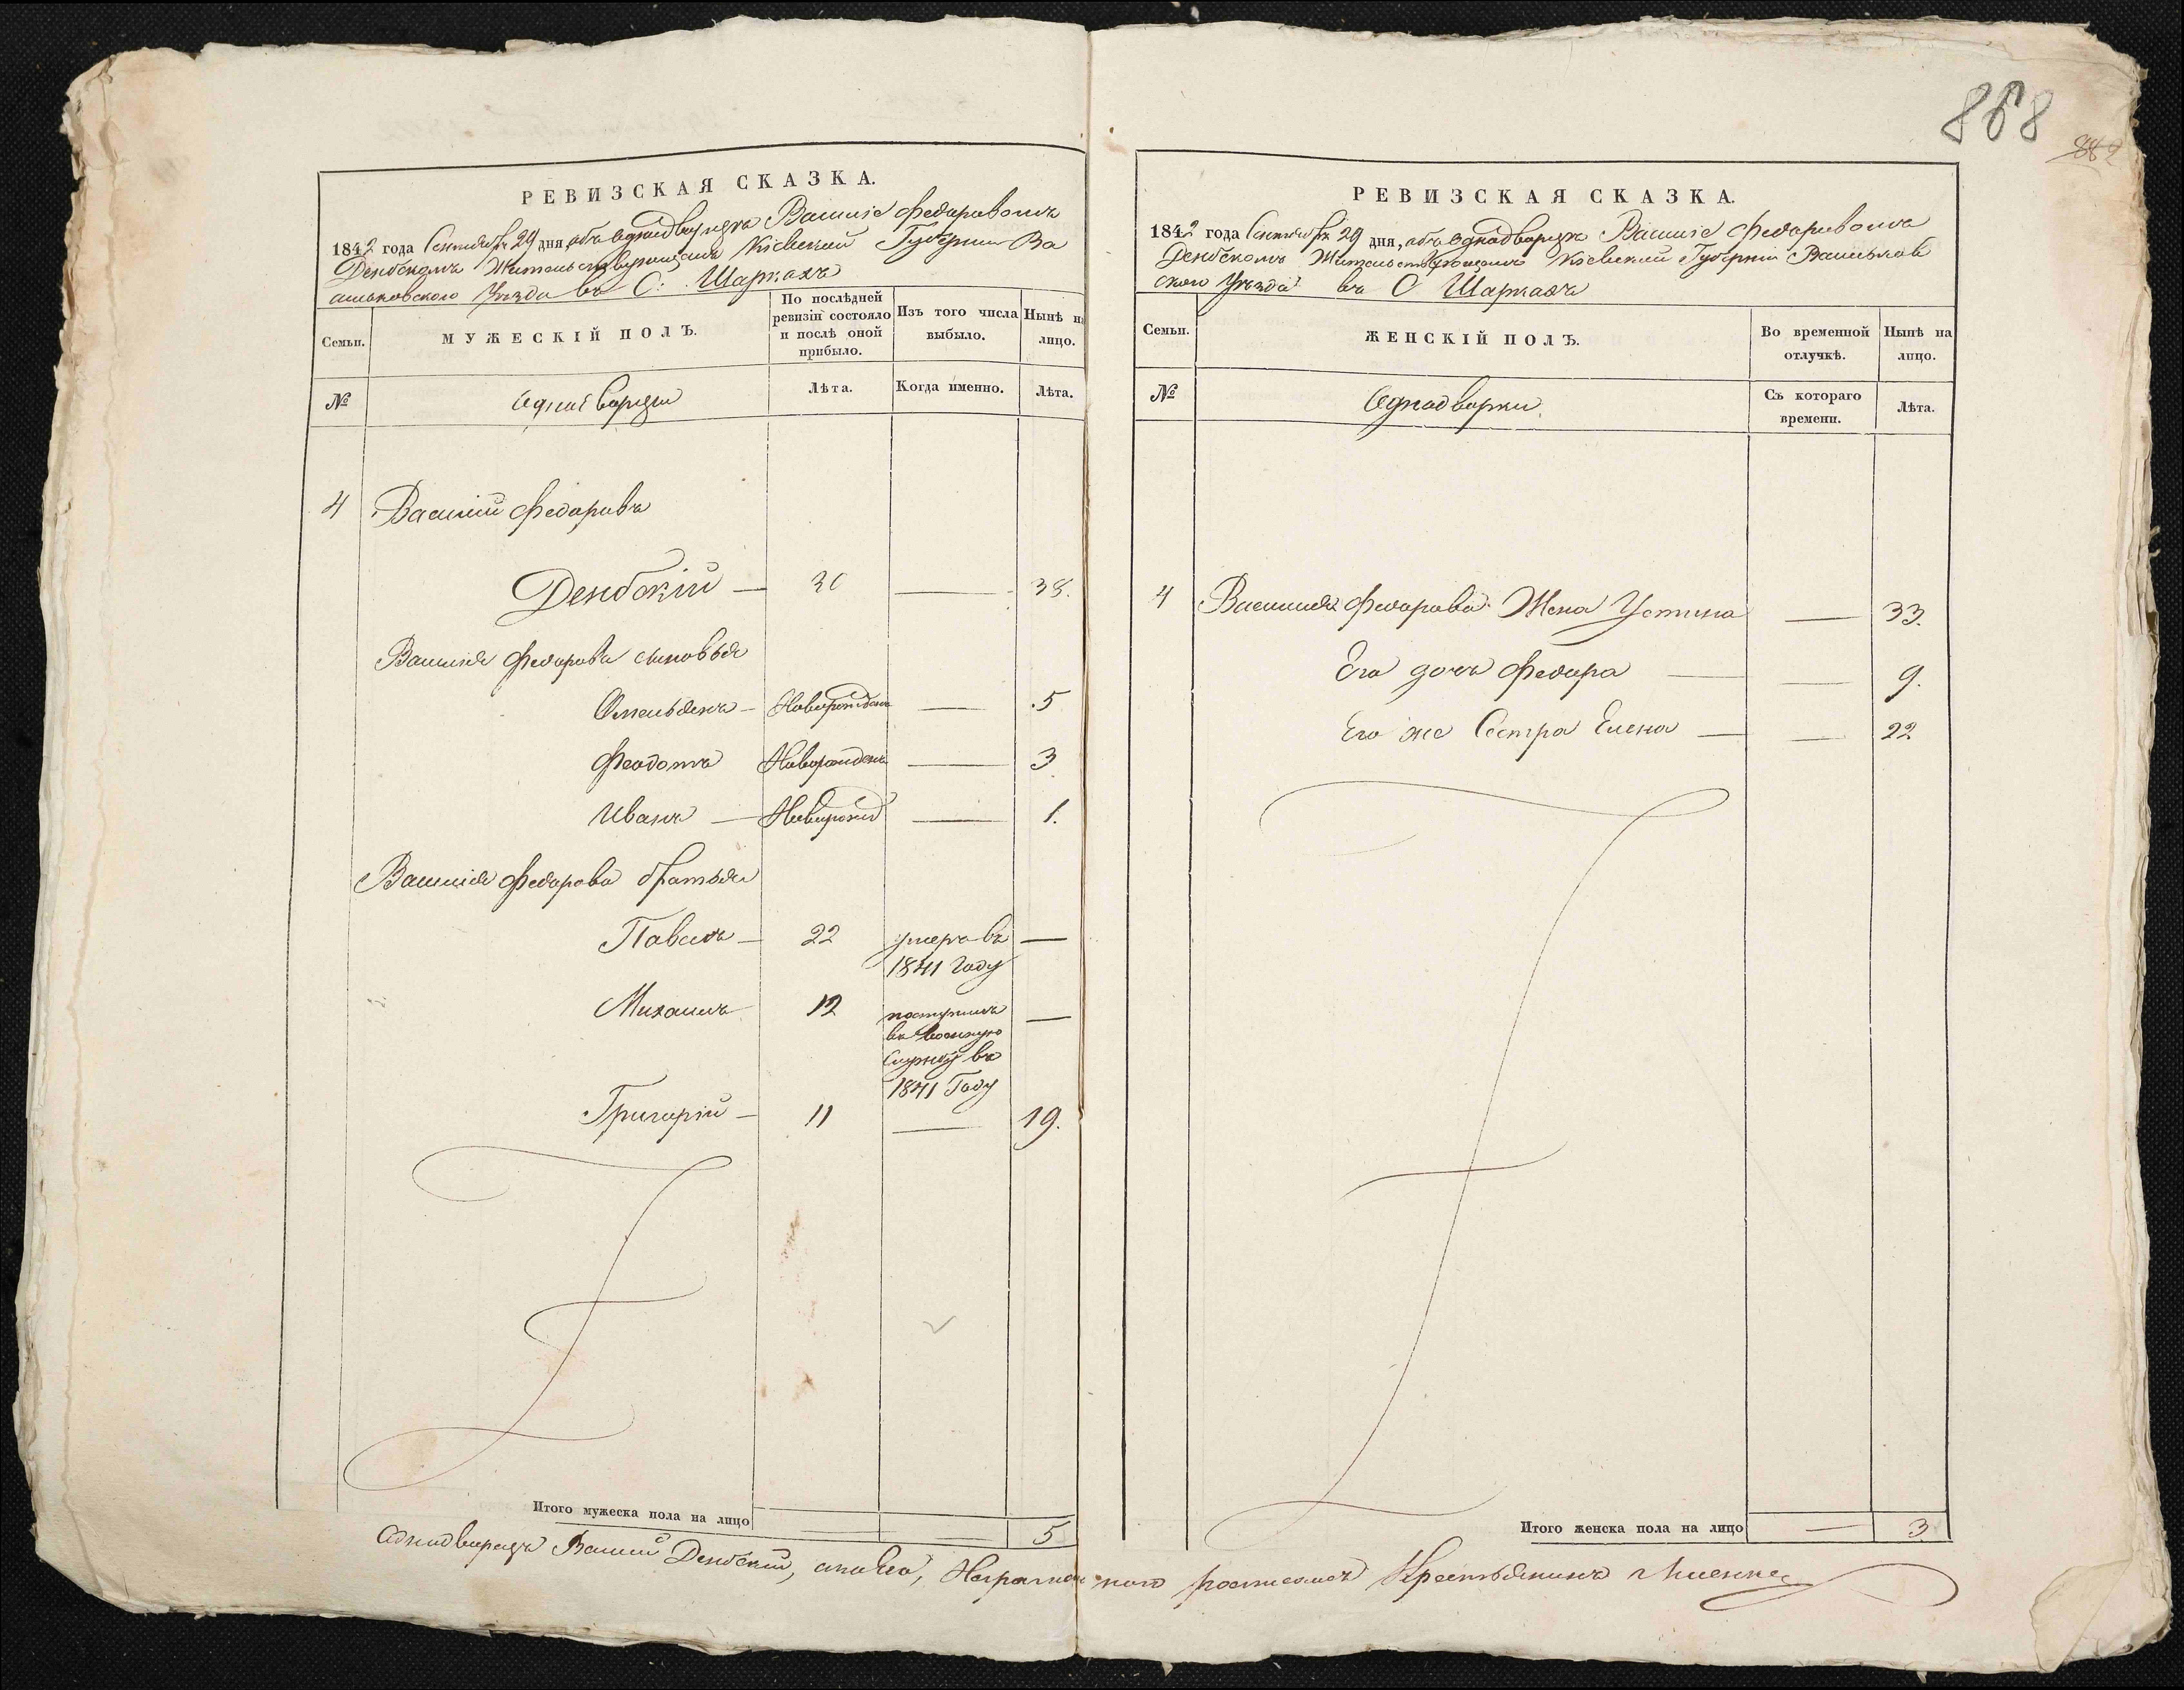 868
882
РЕВИЗСКАЯ СКАЗКА.
1842 года Сентября 29 дня, объ однодворцѣ Василіе Федоровомъ
Денбскомъ Жительствующемъ Кіевской Губерніи Ва
сильковского Уѣзда въ С: Шаркахъ
Семьи.
МУЖЕСКІЙ ПОЛЪ.
По послѣдней ревизіи состояло и послѣ оной прибыло.
Изъ того числа выбыло.
Нынѣ на лицо.
№
Однодворцы
Лѣта.
Когда именно.
Лѣта.
4 Василій Федоровъ
Денбскій — 30 — 38.
Василія Федорова сыновья
Омельянъ — Новорожденъ — 5
Феодотъ Новорожденъ — 3
Иванъ — Новорожд — 1.
Василія Федорова братья
Павелъ — 22 умеръ въ —
1841 Году
Михаилъ 12 поступилъ —
въ военную
Службу въ
1841 Году
Григорій — 11 — 19.
Итого мужеска пола на лицо — — 5
РЕВИЗСКАЯ СКАЗКА.
1842 года Сентября 29 дня, объ однодворцѣ Василіе Федоровомъ
Денбскомъ Жительствующемъ Кіевской Губерніи Васильков
ского Уѣзда въ С Шаркахъ
Семьи.
ЖЕНСКІЙ ПОЛЪ.
Во временной отлучкѣ.
Нынѣ на лицо.
№
Однодворки
Съ котораго времени.
Лѣта.
4 Василия Федорова Жена Устина — 33.
Его дочь Федора — — 9.
Его же Сестра Елена — — 22
Итого женска пола на лицо — 3
Однодворецъ Василій Денбскій, а но Его, Неграмотного росписался Крестьянинъ